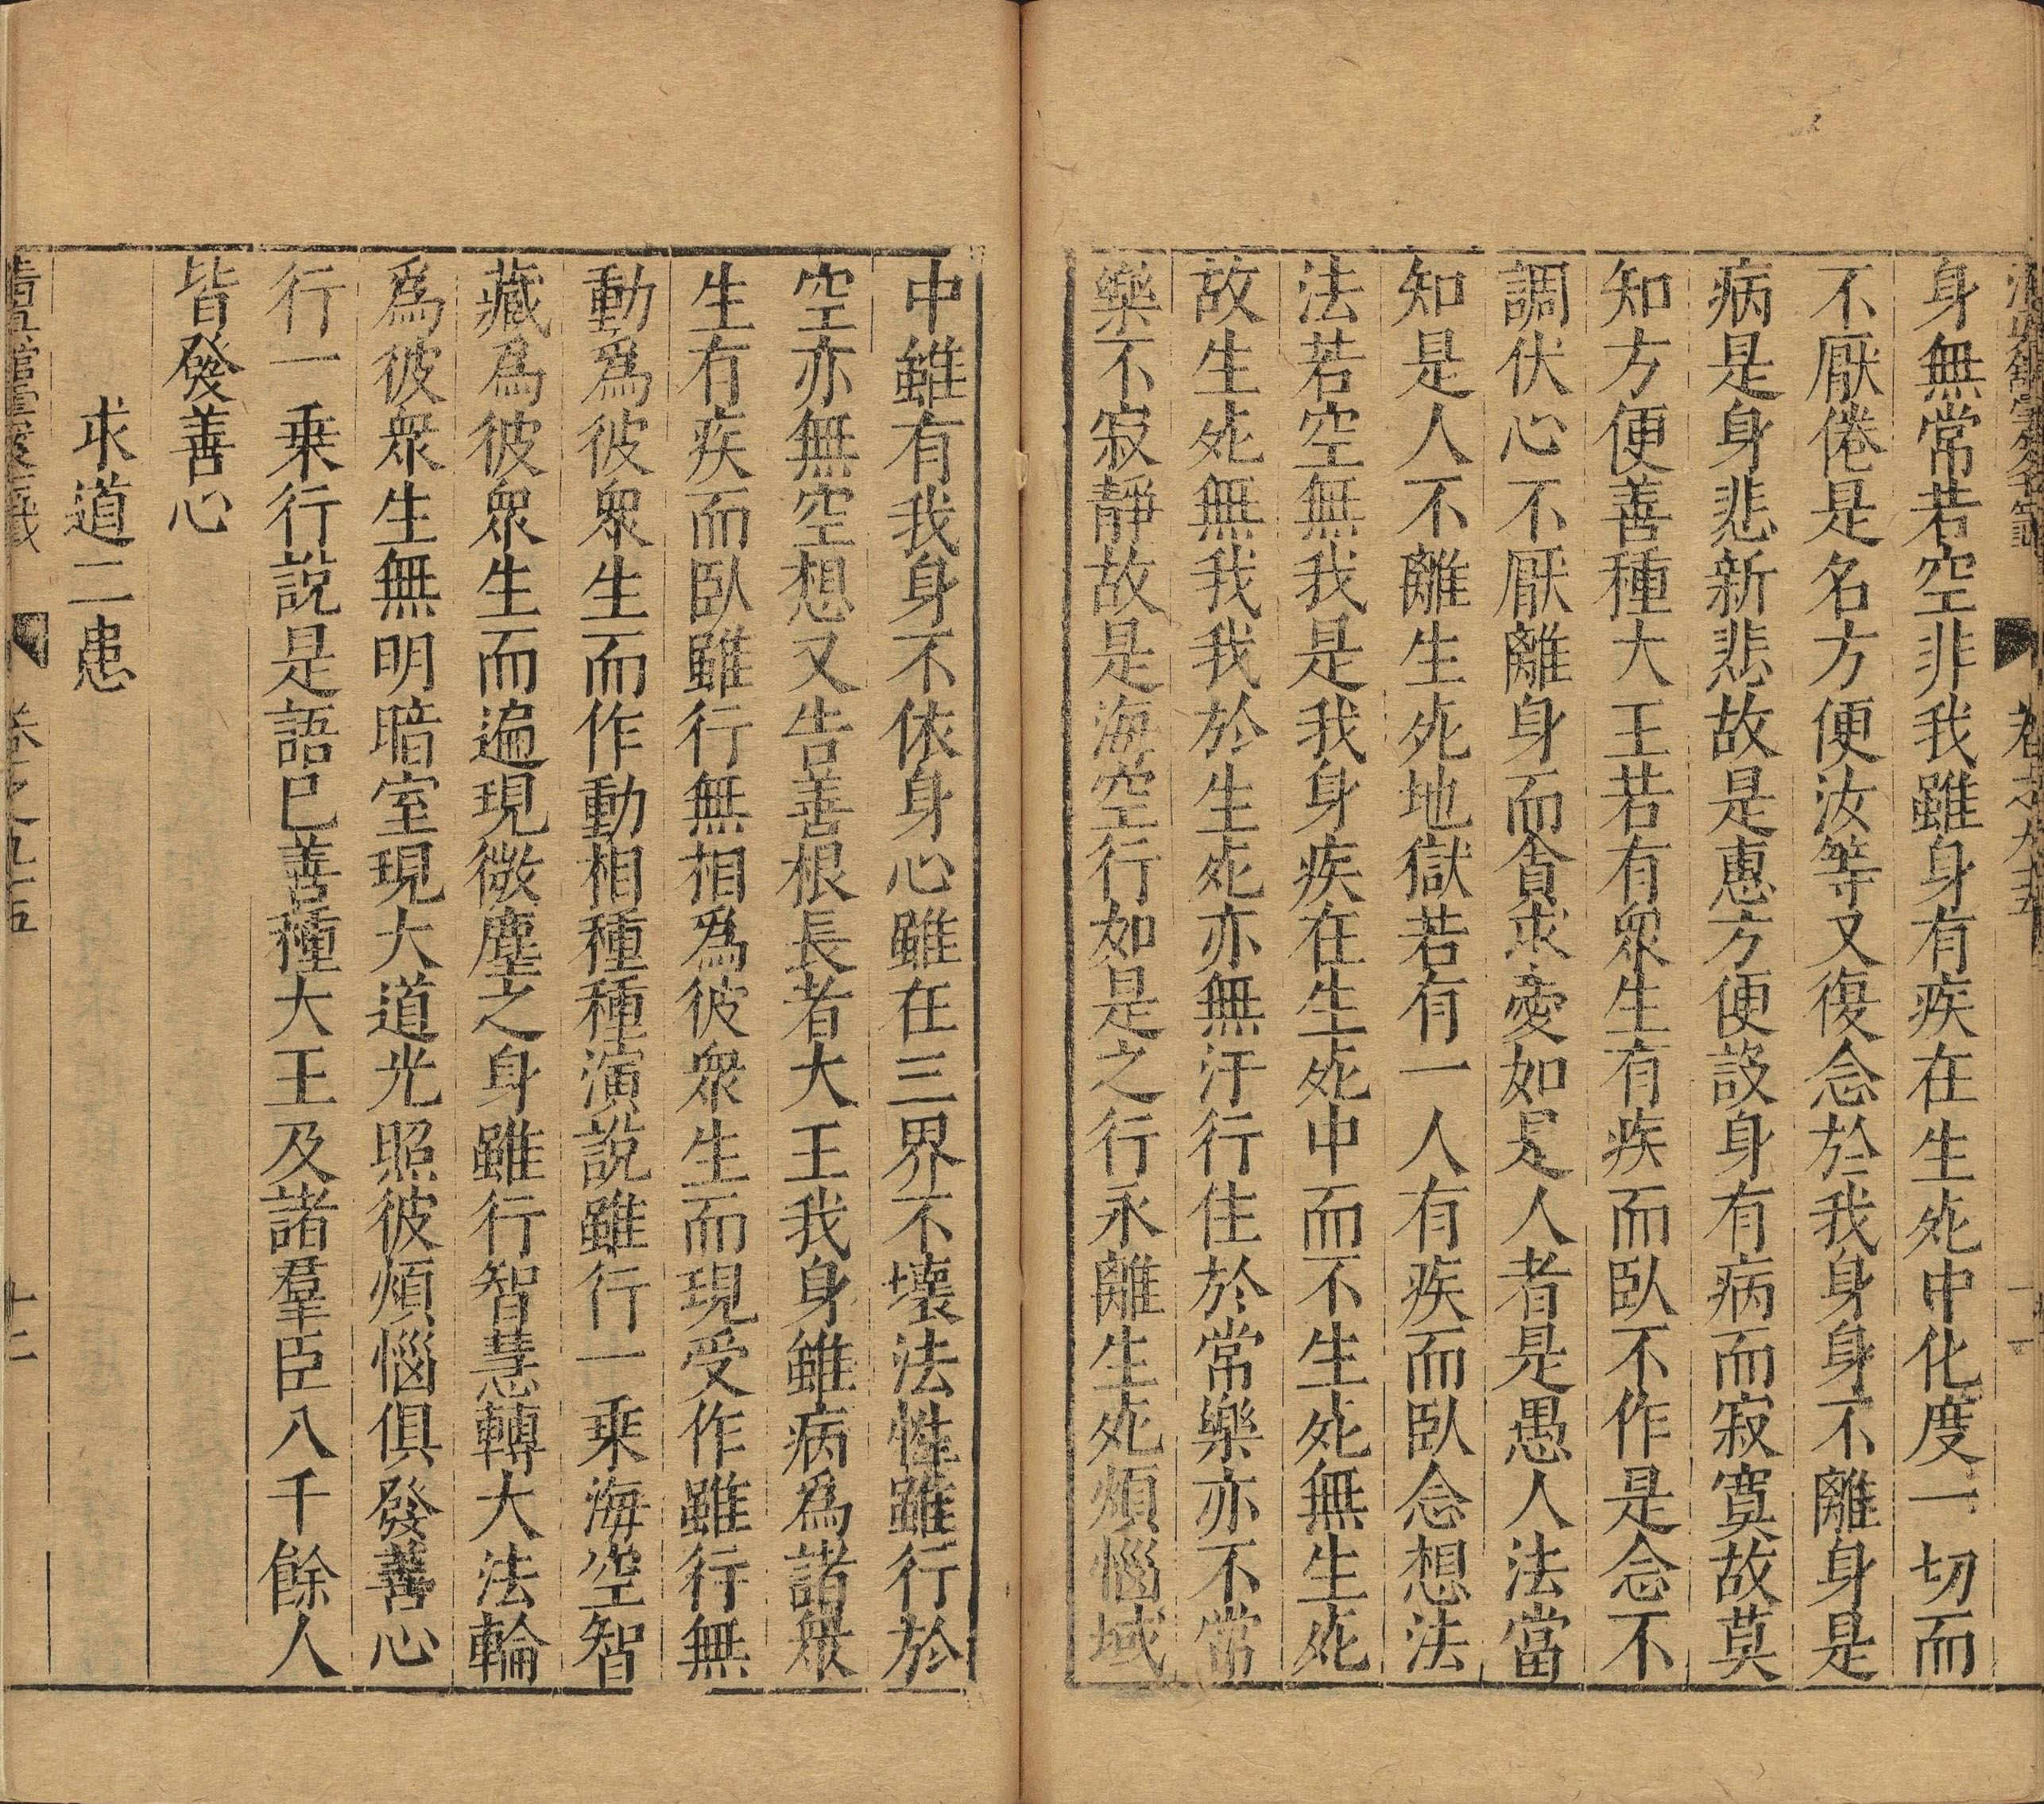 身無常若空非我雖身有疾在生死中化度一切而
不厭倦是名方便汝等又復念於我身身不離身是
病是身悲新悲故是惠方便設身有病而寂寞故莫
知方便善種大王若有衆生有疾而臥不作是念不
調伏心不厭離身而貪求愛如是人者是愚人法當
知是人不離生死地獄若有一人有疾而臥念想法
法若空無我是我身疾在生死中而不生死無生死
故生死無我我於生死亦無汙行住於常樂亦不常
樂不寂靜故是海空行如是之行永離生死煩惱域
中雖有我身不依身心雖在三界不壞法性雖行於
空亦無空想又告善根長者大王我身雖病爲諸衆
生有疾而臥雖行無相爲彼衆生而現受作雖行無
動爲彼衆生而作動相種種演說雖行一乘海空智
藏爲彼衆生而遍現微塵之身雖行智慧轉大法輪
爲彼衆生無明暗室現大道光照彼煩惱俱發善心
行一乘行說是語已善種大王及諸羣臣八千餘人
皆發善心
求道二患
卷之九五 十二